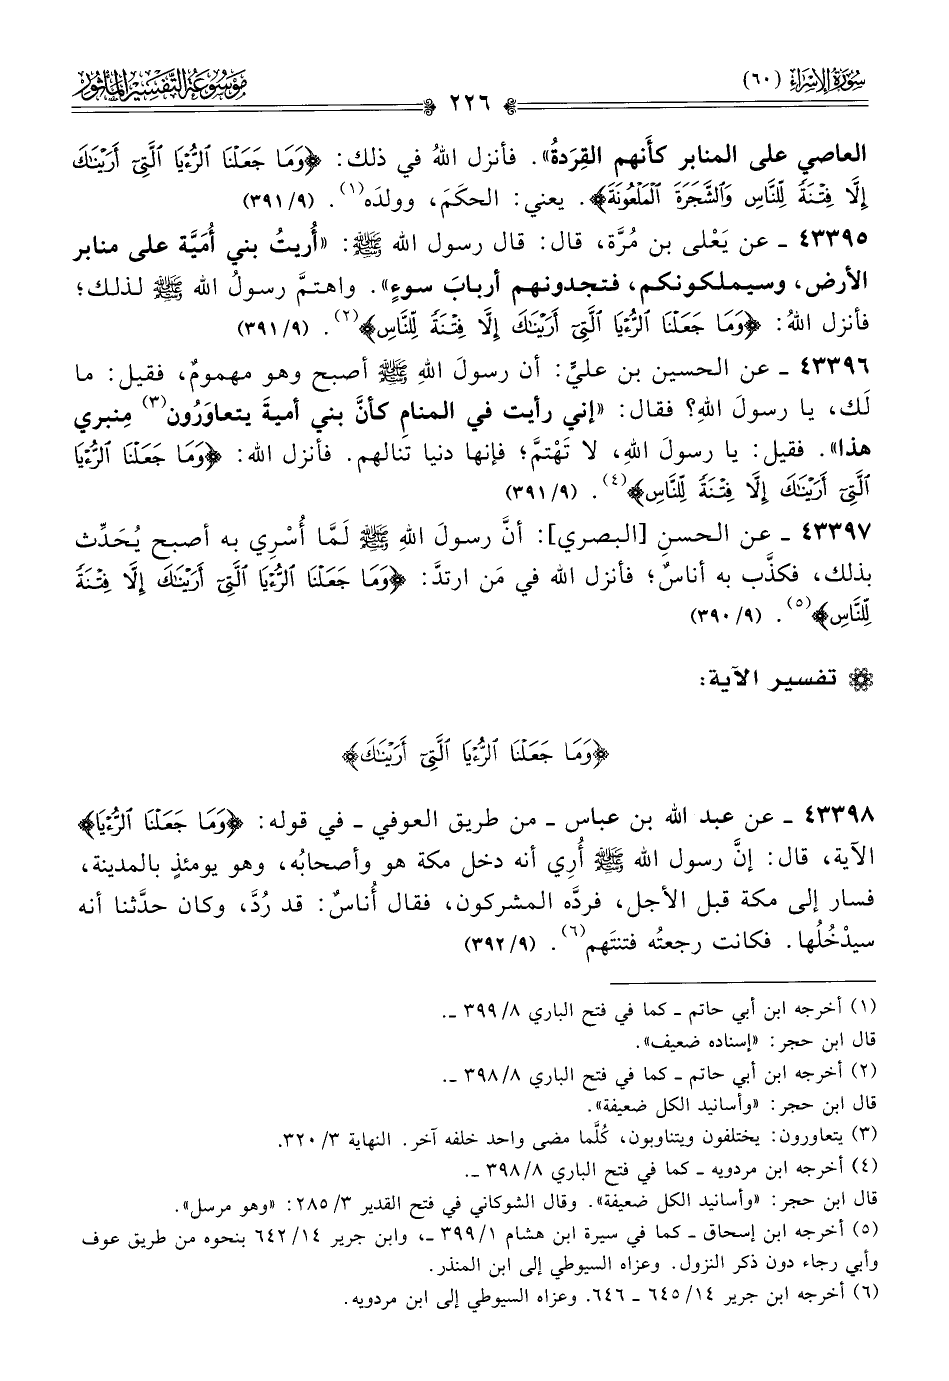 سُورَةُ الإِسْرَاء (٦٠)
٢٢٦
مَوْسُوعَةُ التَّفْسِيرِ المَأْثُور
العاصي على المنابر كأَنهم القِرَدةُ». فأنزل اللهُ في ذلك: ﴿وَمَا جَعَلْنَا ٱلرُّءْيَا ٱلَّتِىٓ أَرَيْنَٰكَ
إِلَّا فِتْنَةً لِّلنَّاسِ وَٱلشَّجَرَةَ ٱلْمَلْعُونَةَ﴾. يعني: الحكَمَ، وولدَه(١). (٣٩١/٩)
٤٣٣٩٥ ـ عن يَعْلى بن مُرَّة، قال: قال رسول الله ﷺ: «أُريتُ بني أُمَيَّة على منابر
الأرض، وسيملكونكم، فتجدونهم أربابَ سوءٍ». واهتمَّ رسولُ الله ﷺ لذلك؛
فأنزل اللهُ: ﴿وَمَا جَعَلْنَا ٱلرُّءْيَا ٱلَّتِىٓ أَرَيْنَٰكَ إِلَّا فِتْنَةً لِّلنَّاسِ﴾(٢). (٣٩١/٩)
٤٣٣٩٦ ـ عن الحسين بن عليٍّ: أن رسولَ اللهِ ﷺ أصبح وهو مهمومٌ، فقيل: ما
لَك، يا رسولَ اللهِ؟ فقال: «إني رأيت في المنامِ كأنَّ بني أميةَ يتعاوَرُون(٣) مِنبري
هذا». فقيل: يا رسولَ اللهِ، لا تَهْتمَّ؛ فإنها دنيا تنالهم. فأنزل الله: ﴿وَمَا جَعَلْنَا ٱلرُّءْيَا
ٱلَّتِىٓ أَرَيْنَٰكَ إِلَّا فِتْنَةً لِّلنَّاسِ﴾(٤). (٣٩١/٩)
٤٣٣٩٧ ـ عن الحسنِ [البصري]: أنَّ رسولَ اللهِ ﷺ لَمَّا أُسْرِي به أصبح يُحَدِّث
بذلك، فكذَّب به أناسٌ؛ فأنزل الله في مَن ارتدَّ: ﴿وَمَا جَعَلْنَا ٱلرُّءْيَا ٱلَّتِىٓ أَرَيْنَٰكَ إِلَّا فِتْنَةً
لِّلنَّاسِ﴾(٥). (٣٩٠/٩)
تفسير الآية:
﴿وَمَا جَعَلْنَا ٱلرُّءْيَا ٱلَّتِىٓ أَرَيْنَٰكَ﴾
٤٣٣٩٨ ـ عن عبد الله بن عباس ـ من طريق العوفي ـ في قوله: ﴿وَمَا جَعَلْنَا ٱلرُّءْيَا﴾
الآية، قال: إنَّ رسول الله ﷺ أُري أنه دخل مكة هو وأصحابُه، وهو يومئذٍ بالمدينة،
فسار إلى مكة قبل الأجل، فردَّه المشركون، فقال أُناسٌ: قد رُدَّ، وكان حدَّثنا أنه
سيدْخُلُها. فكانت رجعتُه فتنتَهم(٦). (٣٩٢/٩)
(١) أخرجه ابن أبي حاتم ـ كما في فتح الباري ٣٩٩/٨ ـ.
قال ابن حجر: «إسناده ضعيف».
(٢) أخرجه ابن أبي حاتم ـ كما في فتح الباري ٣٩٨/٨ ـ.
قال ابن حجر: «وأسانيد الكل ضعيفة».
(٣) يتعاورون: يختلفون ويتناوبون، كُلَّما مضى واحد خلفه آخر. النهاية ٣٢٠/٣.
(٤) أخرجه ابن مردويه ـ كما في فتح الباري ٣٩٨/٨ ـ.
قال ابن حجر: «وأسانيد الكل ضعيفة». وقال الشوكاني في فتح القدير ٢٨٥/٣: «وهو مرسل».
(٥) أخرجه ابن إسحاق ـ كما في سيرة ابن هشام ٣٩٩/١ ـ، وابن جرير ٦٤٢/١٤ بنحوه من طريق عوف
وأبي رجاء دون ذكر النزول. وعزاه السيوطي إلى ابن المنذر.
(٦) أخرجه ابن جرير ٦٤٥/١٤ ـ ٦٤٦. وعزاه السيوطي إلى ابن مردويه.